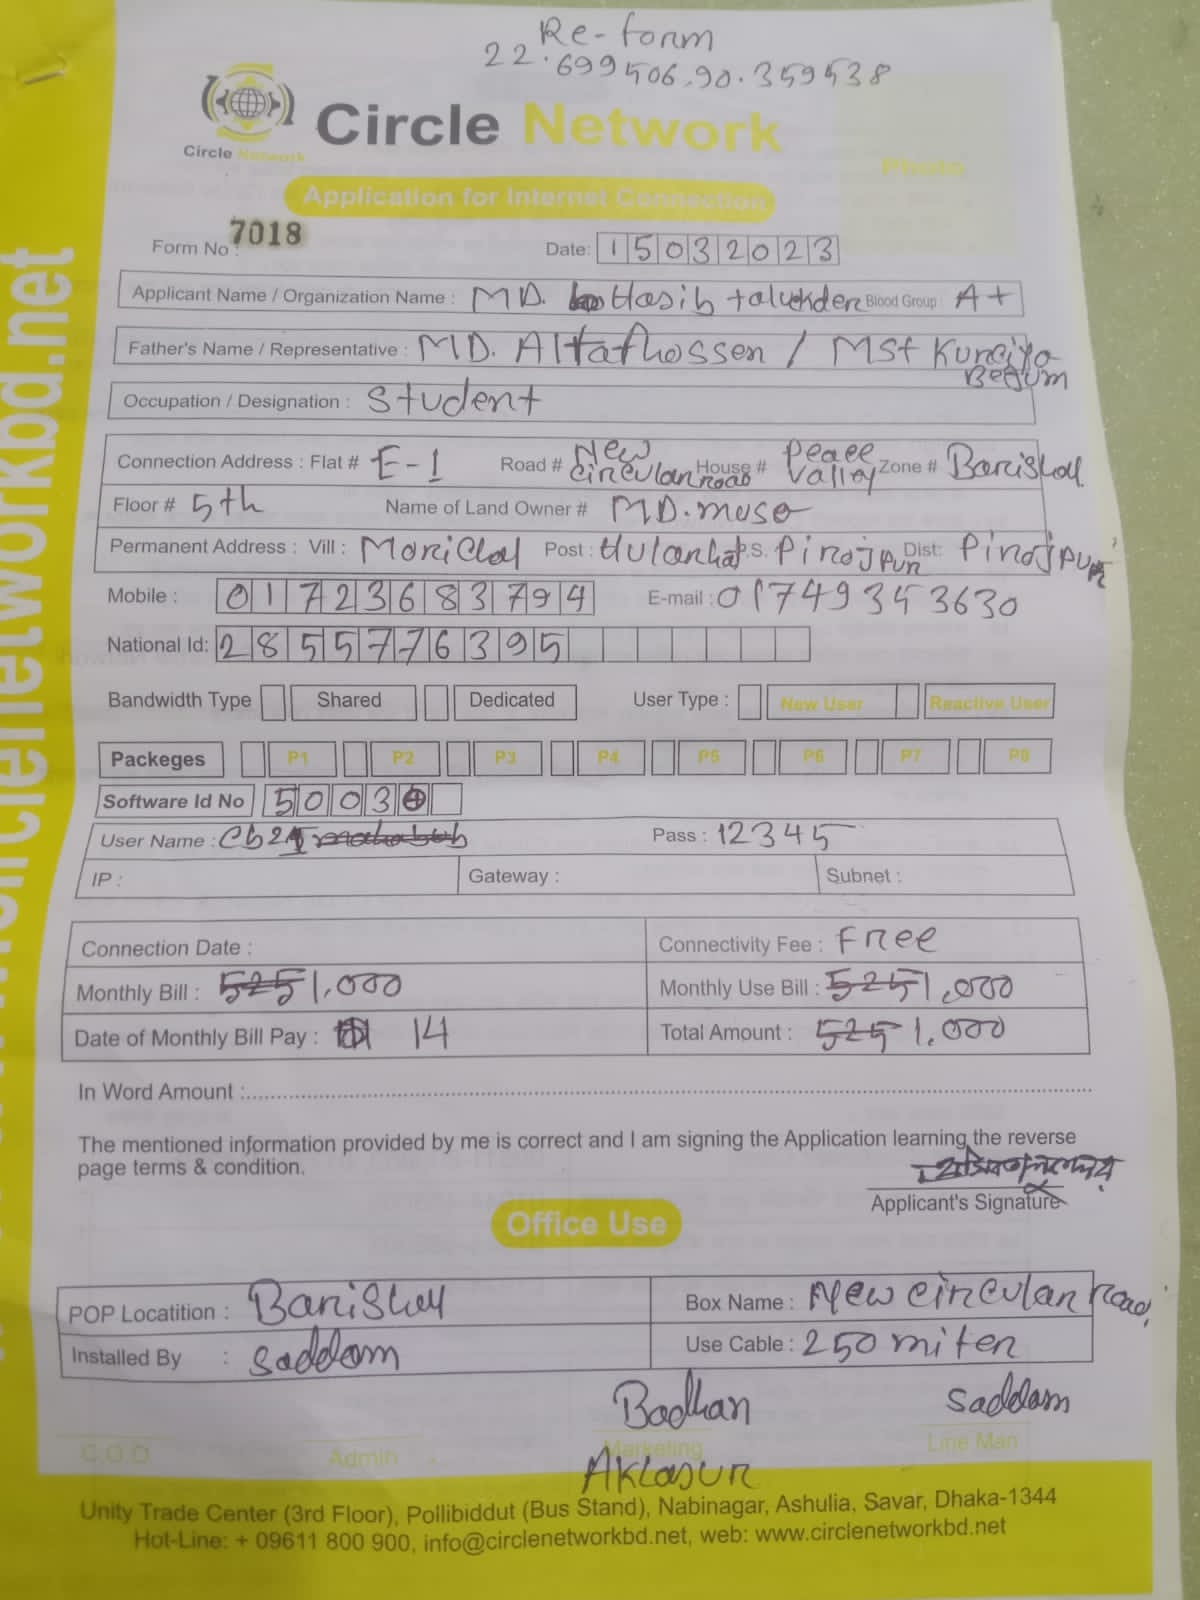 Re-form
22.699506.90.359538
Circle Network
Circle Network
Photo
Application for Internet Connection
Form No : 7018 Date: 15032023
Applicant Name / Organization Name : MD. Hasib talukder Blood Group : A+
Father's Name / Representative : MD. Altafhossen / MSt Kursiya Begum
Occupation / Designation : Student
Connection Address : Flat # E-1 Road # New Circular road House # Peace Valley Zone # Barishal
Floor # 5th Name of Land Owner # MD. musa
Permanent Address : Vill : Post : Hularhat P.S. Pirojpur Dist: Pirojpur
Mobile : 01723683794 E-mail : 01749353630
National Id: 2855776395
Bandwidth Type Shared Dedicated User Type : New User Reactive User
Packeges P1 P2 P3 P4 P5 P6 P7 P8
Software Id No 5003
User Name : Pass : 12345
IP : Gateway : Subnet :
Connection Date : Connectivity Fee : Free
Monthly Bill : 525 1,000 Monthly Use Bill : 525 1,000
Date of Monthly Bill Pay : 14 Total Amount : 525 1,000
In Word Amount :
The mentioned information provided by me is correct and I am signing the Application learning the reverse
page terms & condition.
Applicant's Signature
Office Use
POP Locatition : Barishal Box Name : New circular road,
Installed By : Saddam Use Cable : 250 miter
Badhan Saddam
C.O.O Admin Marketing Line Man
Aklasur
Unity Trade Center (3rd Floor), Pollibiddut (Bus Stand), Nabinagar, Ashulia, Savar, Dhaka-1344
Hot-Line: + 09611 800 900, info@circlenetworkbd.net, web: www.circlenetworkbd.net